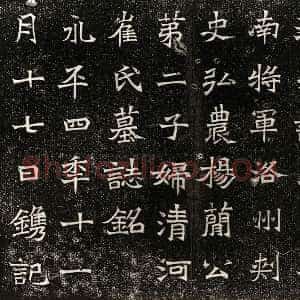 南將軍洛州刾
史弘農楊蘭公
第二子婦清河
崔氏墓誌銘
永平四秊十一
月十七日鐫記